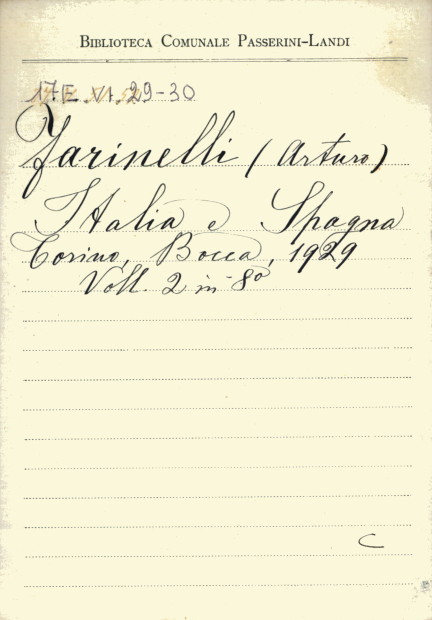 BIBLIOTECA COMUNALE PASSERINI-LANDI
17E.VI.29-30
Farinelli (Arturo)
Italia e Spagna
Torino, Bocca, 1929
Voll. 2 in-8º
C